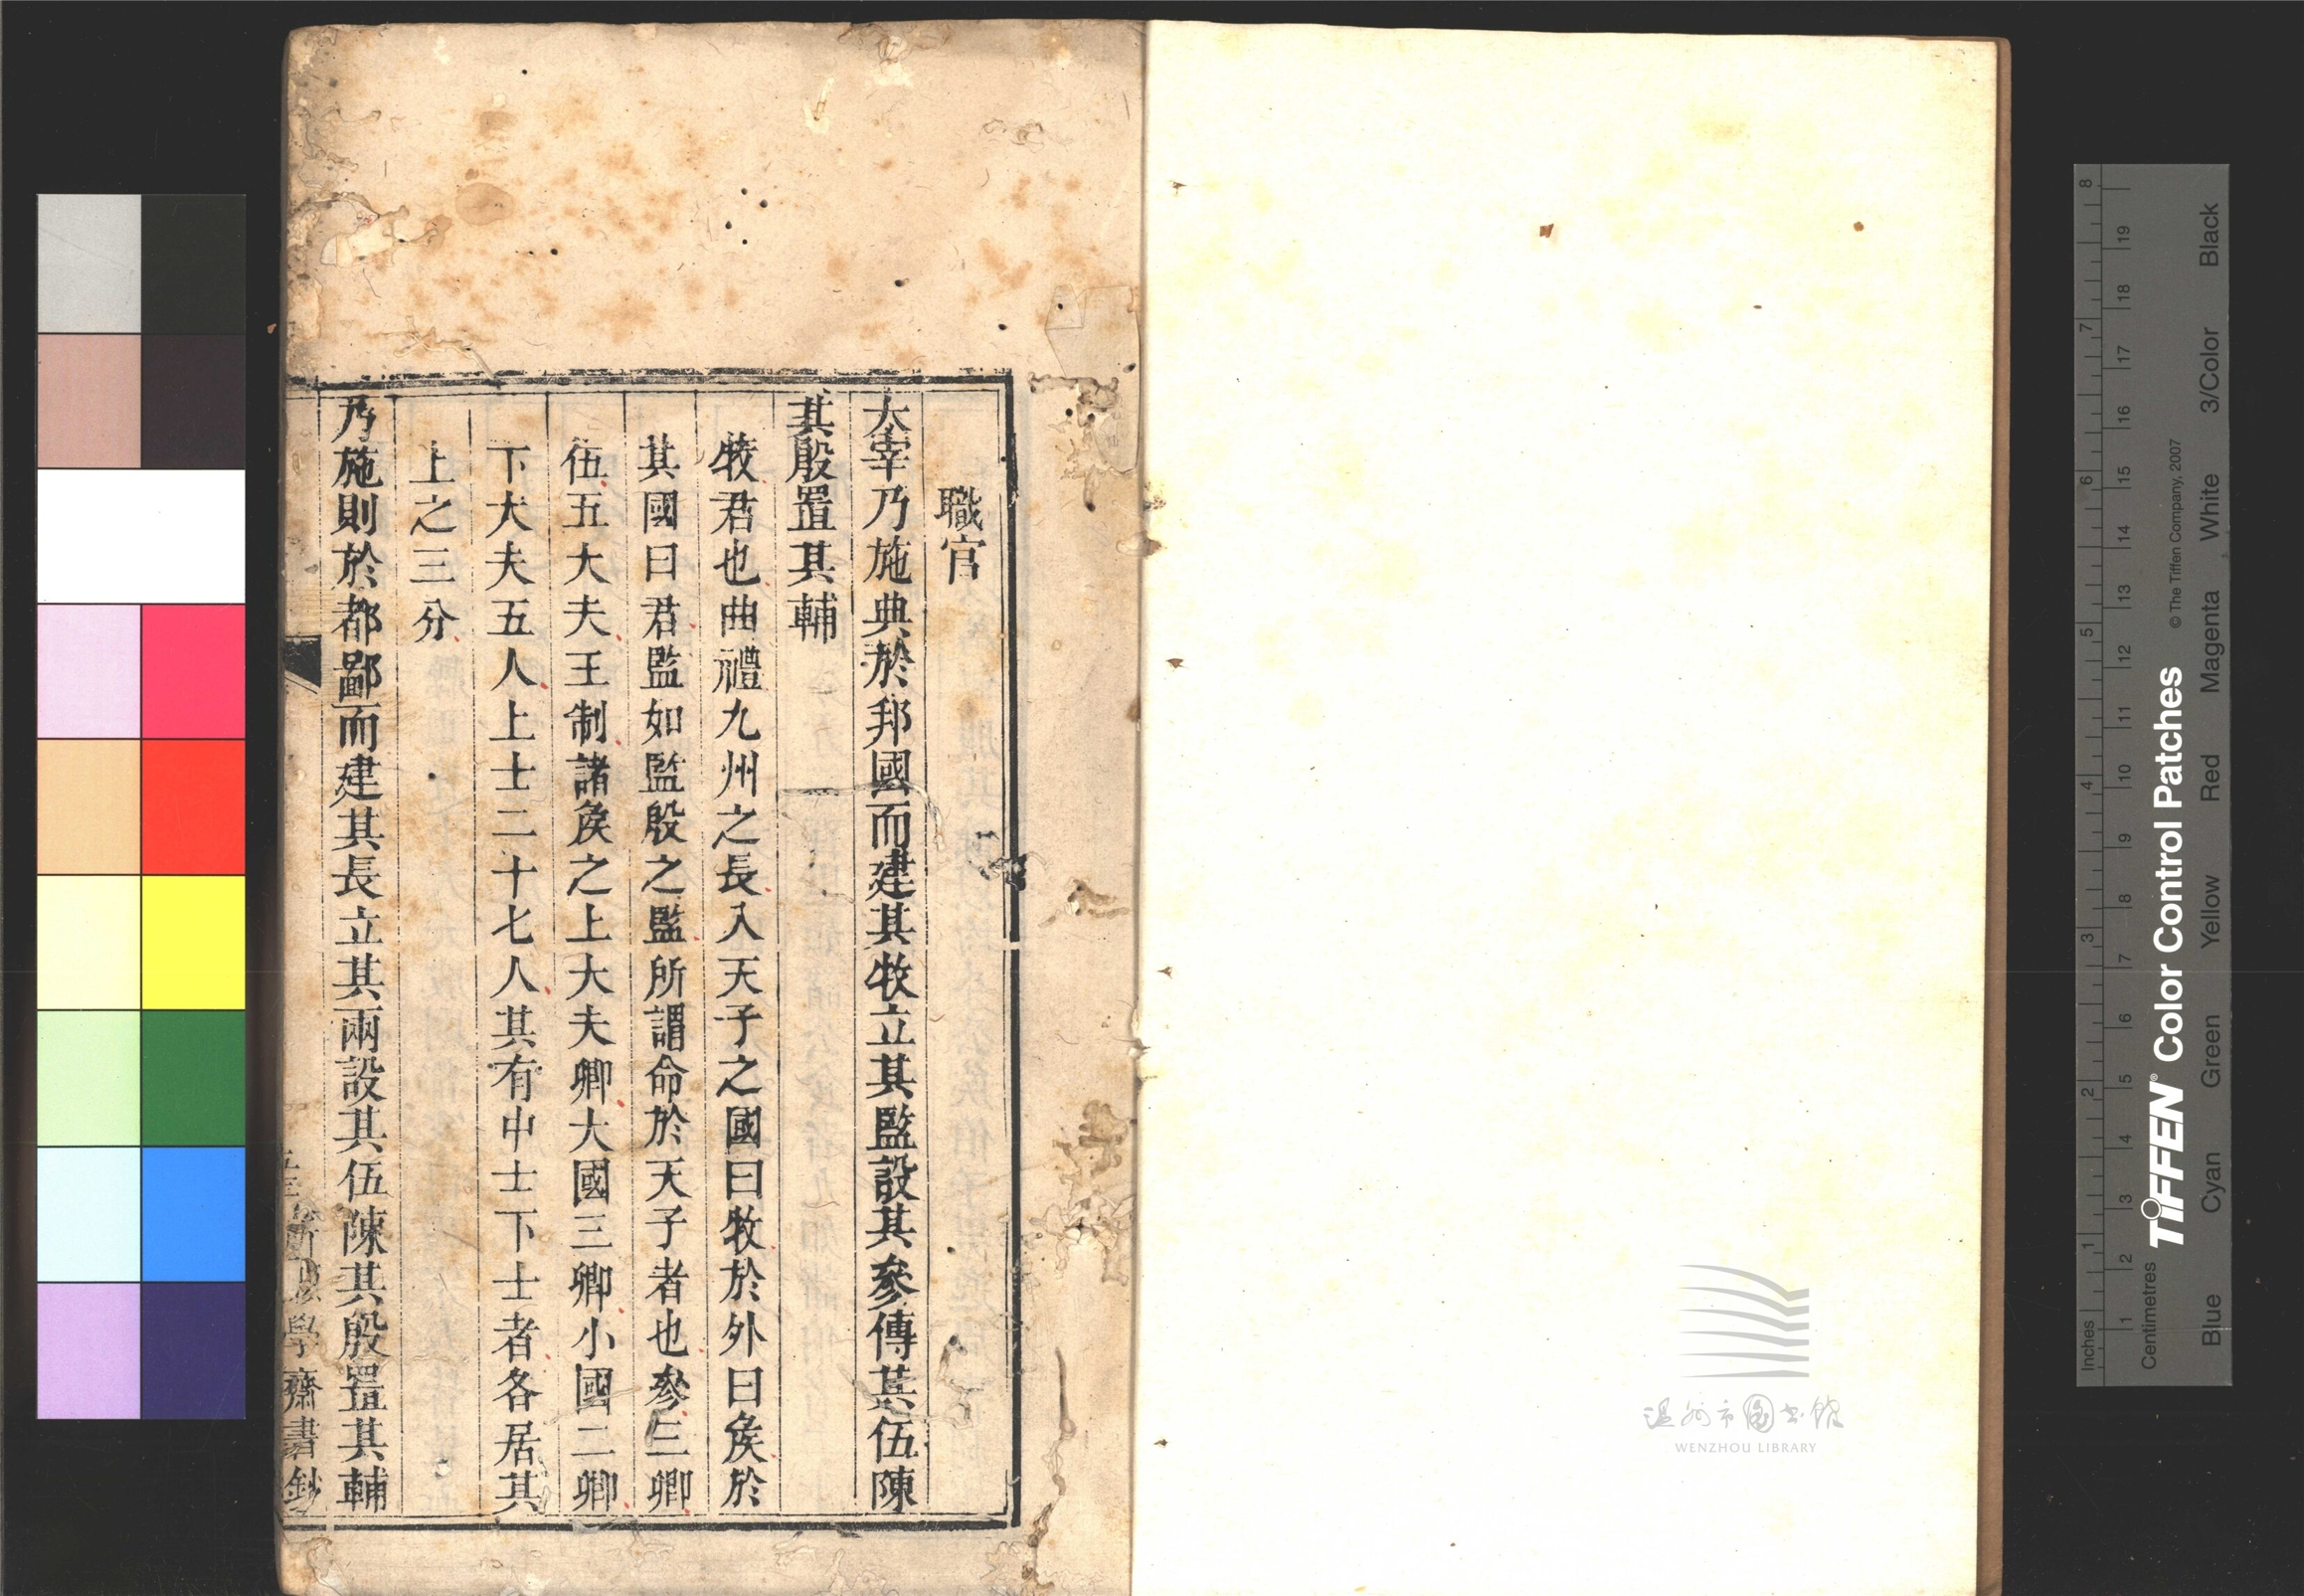 職官
太宰乃施典於邦國而建其牧立其監設其參傳其伍陳
其殷置其輔
牧君也曲禮九州之長入天子之國曰牧於外曰矦於
其國曰君監如監殷之監所謂命於天子者也參三卿
伍五大夫王制諸矦之上大夫卿大國三卿小國二卿
下大夫五人上士二十七人其有中士下士者各居其
上之三分
乃施則於都鄙而建其長立其兩設其伍陳其殷置其輔
學齋書鈔
溫州市圖書館
WENZHOU LIBRARY
Inches 1 2 3 4 5 6 7 8
Centimetres 1 2 3 4 5 6 7 8 9 10 11 12 13 14 15 16 17 18 19
TIFFEN® Color Control Patches © The Tiffen Company, 2007
Blue Cyan Green Yellow Red Magenta White 3/Color Black